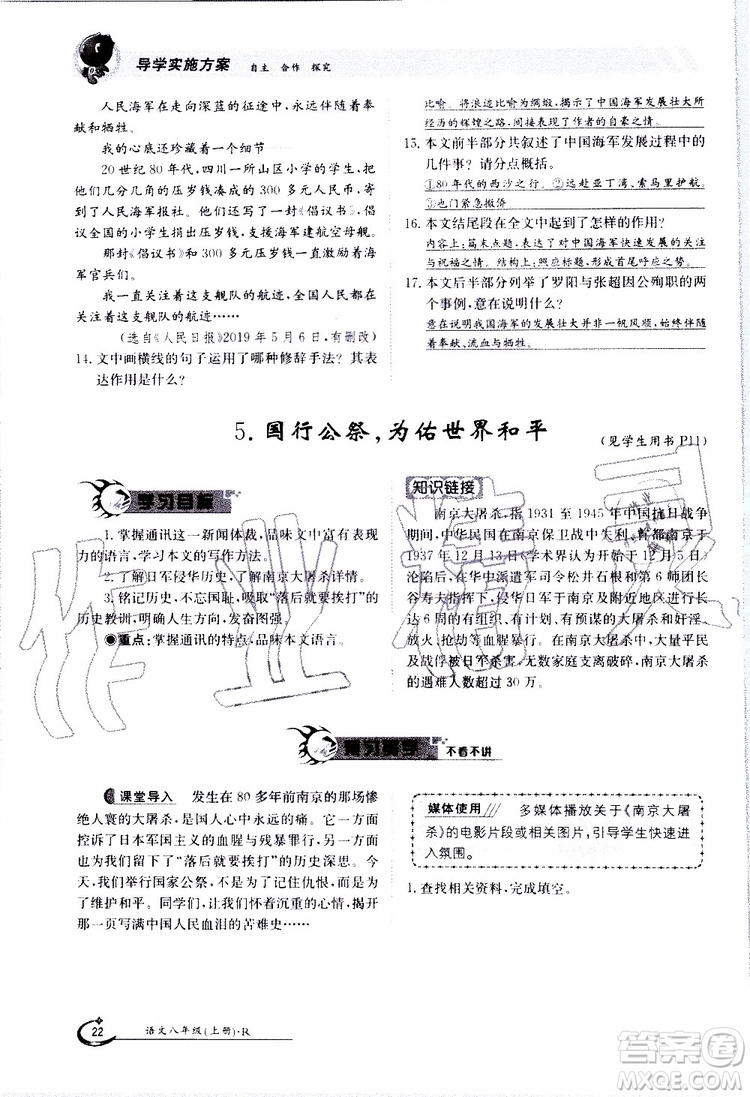 导学实施方案 自主 合作 探究
人民海军在走向深蓝的征途中，永远伴随着奉
献和牺牲。
我的心底还珍藏着一个细节——
20 世纪 80 年代，四川一所山区小学的学生，把
他们几分几角的压岁钱凑成的 300 多元人民币，寄
到了人民海军报社。他们还写了一封《倡议书》，倡
议全国的小学生捐出压岁钱，支援海军建航空母舰。
那封《倡议书》和 300 多元压岁钱一直激励着海
军官兵们。
我一直关注着这支舰队的航迹，全国人民都在
关注着这支舰队的航迹……
(选自《人民日报》2019 年 5 月 6 日，有删改)
14. 文中画横线的句子运用了哪种修辞手法？其表
达作用是什么？
比喻。将浪迹比喻为绸缎，揭示了中国海军发展壮大所
经历的辉煌之路，同时抒发了作者的自豪之情。
15. 本文前半部分共叙述了中国海军发展过程中的
几件事？请分点概括。
①80 年代的西沙之行；②远赴亚丁湾、索马里护航；
③也门紧急撤侨
16. 本文结尾段在全文中起到了怎样的作用？
内容上：篇末点题，表达了对中国海军快速发展的关注
与祝福之情；结构上：照应标题，形成首尾呼应之势。
17. 本文后半部分列举了罗阳与张超因公殉职的两
个事例，意在说明什么？
意在说明我国海军的发展壮大并非一帆风顺，始终伴随
着奉献、流血与牺牲。
5. 国行公祭，为佑世界和平
(见学生用书 P11)
学习目标
1. 掌握通讯这一新闻体裁，品味文中富有表现
力的语言，学习本文的写作方法。
2. 了解日军侵华历史，了解南京大屠杀详情。
3. 铭记历史，不忘国耻，吸取“落后就要挨打”的
历史教训，明确人生方向，发奋图强。
重点：掌握通讯的特点，品味本文语言。
知识链接
南京大屠杀，指 1931 至 1945 年中国抗日战争
期间，中华民国在南京保卫战中失利、首都南京于
1937 年 12 月 13 日(学术界认为是 12 月 5 日)
沦陷后，在华中派遣军司令松井石根和第 6 师团长
谷寿夫指挥下，侵华日军于南京及附近地区进行长
达 6 周的有组织、有计划、有预谋的大屠杀和奸淫、
放火、抢劫等血腥暴行。在南京大屠杀中，大量平民
及战俘被日军杀害，无数家庭支离破碎，南京大屠杀
的遇难人数超过 30 万。
预习导学 不看不讲
课堂导入 发生在 80 多年前南京的那场惨
绝人寰的大屠杀，是国人心中永远的痛。上面这一切
控诉了日本军国主义的血腥与残暴罪行，同时也
为我们留下了“落后就要挨打”的历史深思。今
天，我们举行国家公祭，不是为了记住仇恨，而是为
了维护和平。同学们，让我们怀着沉重的心情，掀开
那一页写满中国人民血泪的苦难史……
媒体使用 多媒体播放关于《南京大屠
杀》的电影片段或相关图片，引导学生快速进
入氛围。
1. 查找相关资料，完成填空。
22 语文八年级(上册)·R
作业精灵
答案圈
MXQE.COM